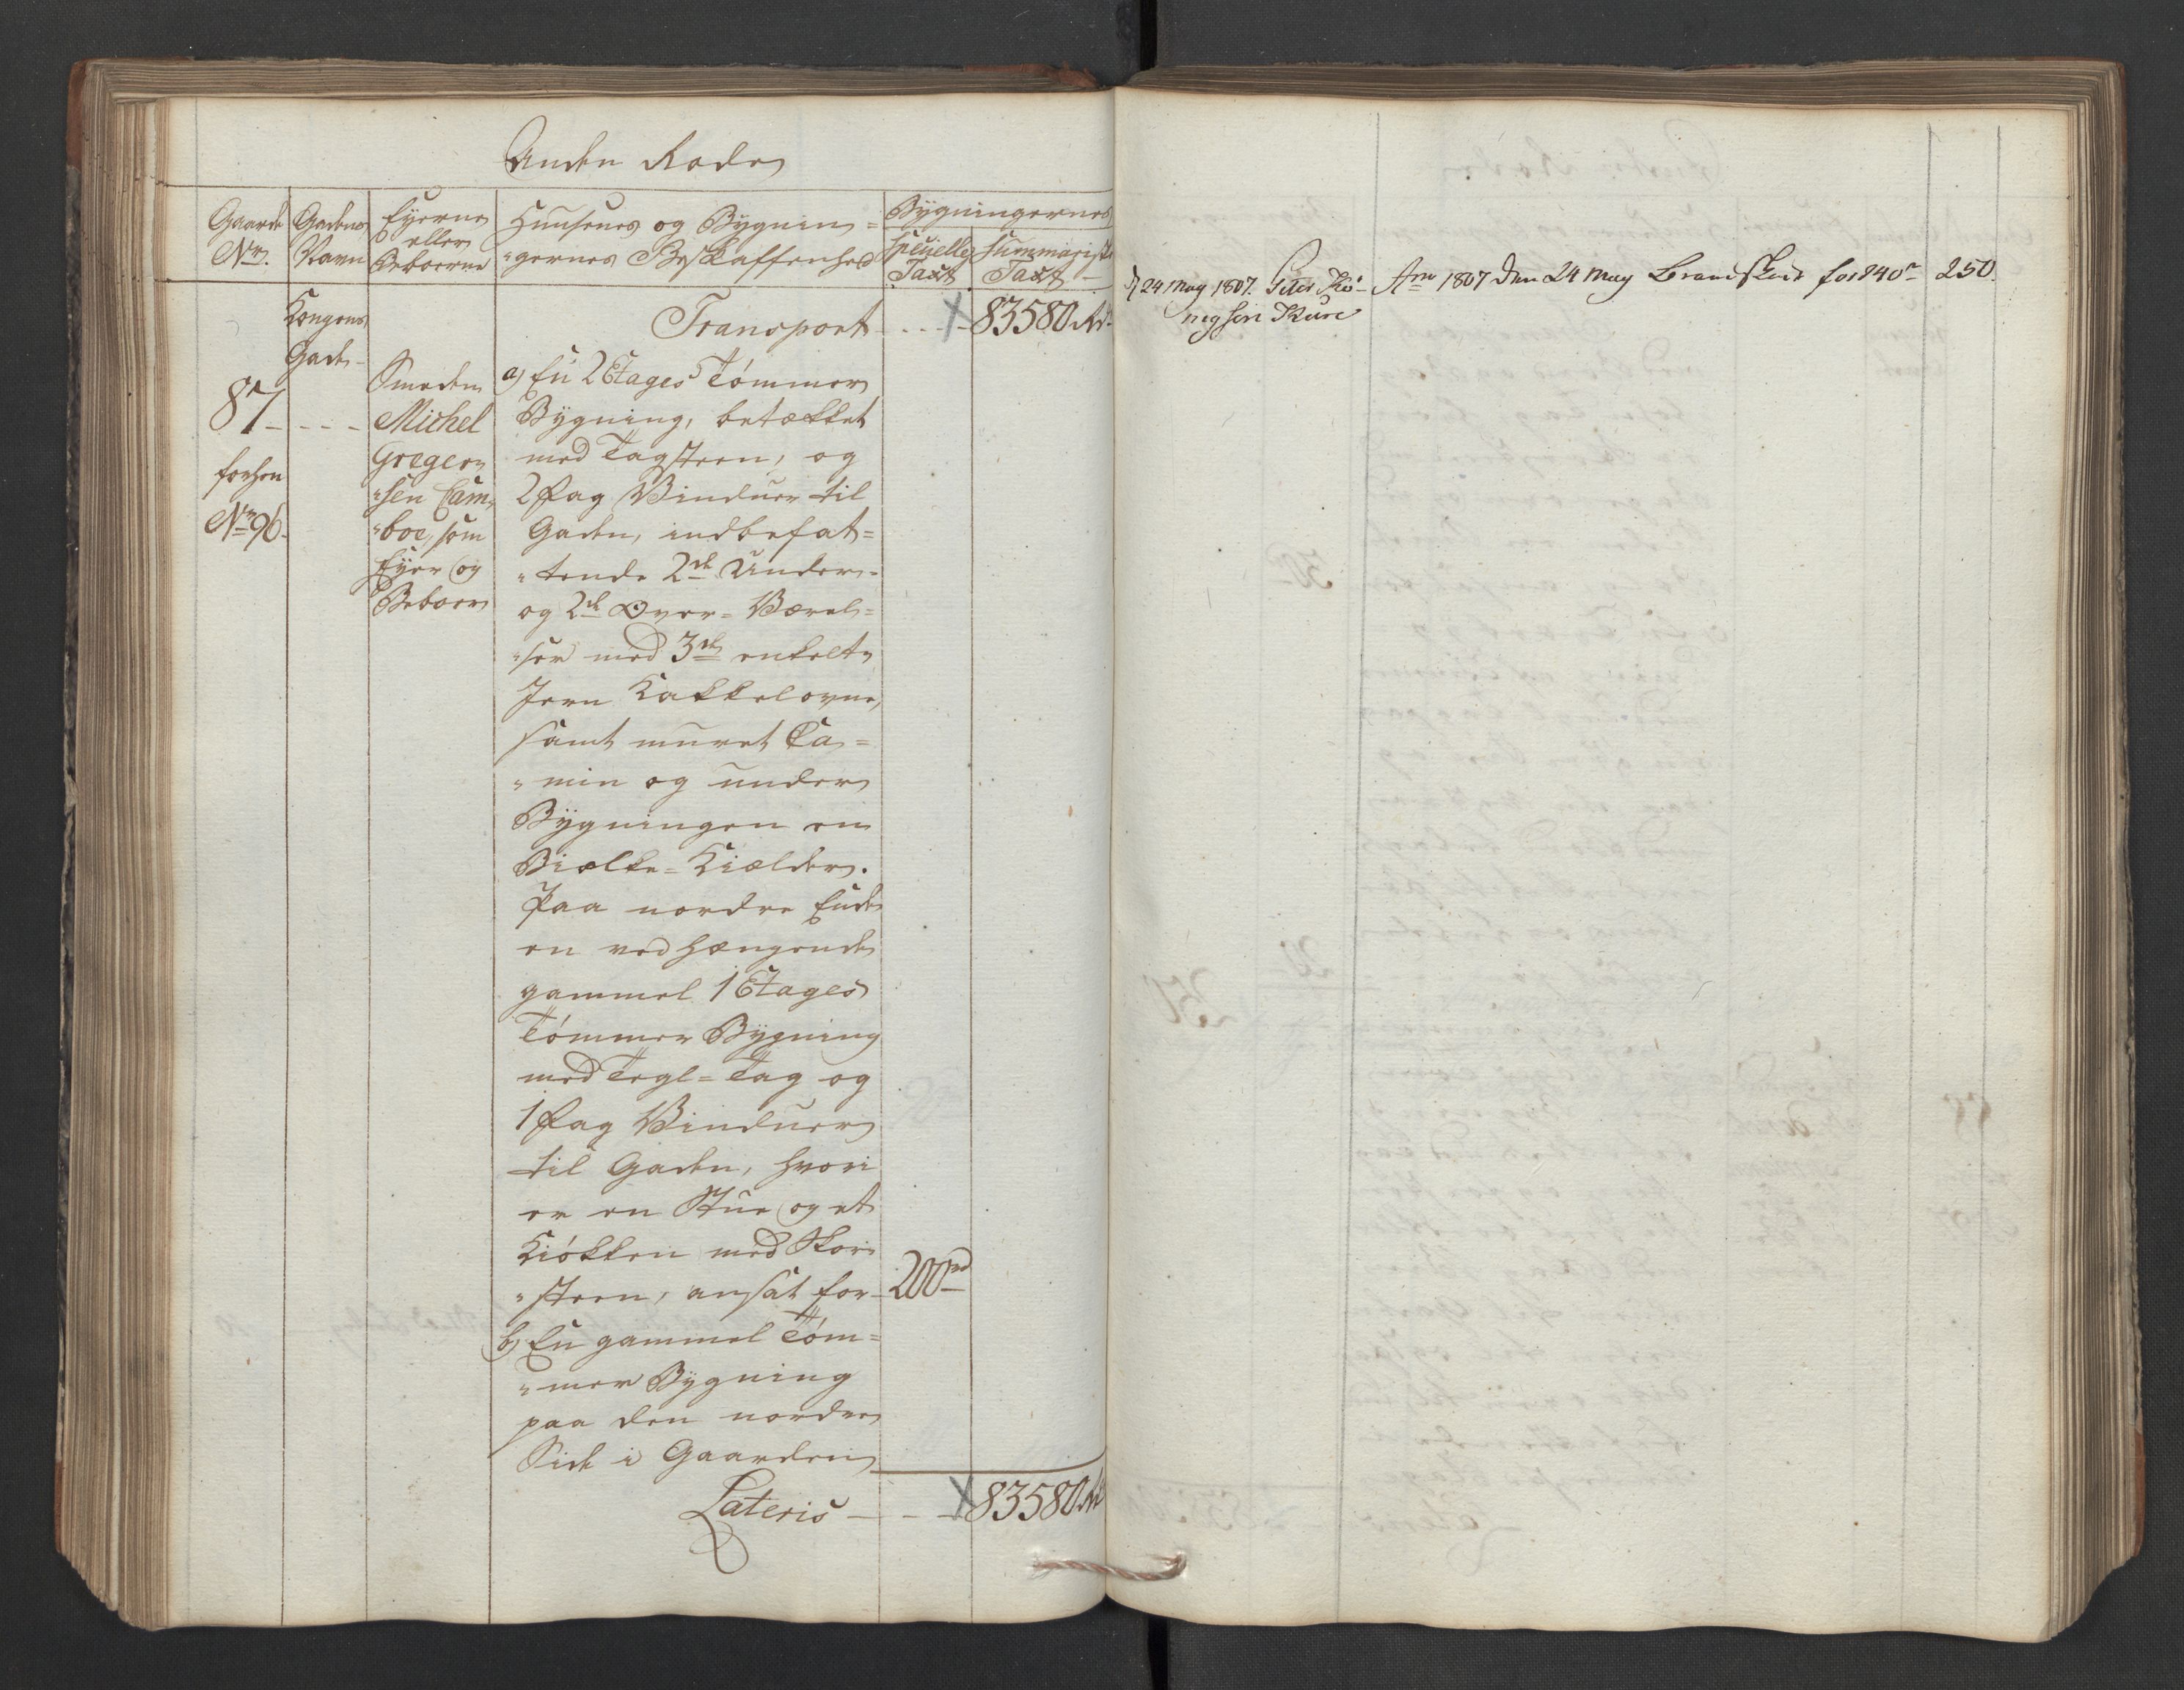 Anden Rode
Gaarde
No.
Gadens
Navn
Eyerne
eller
Beboerne
Huusenes og Bygnin=
"gernes Beskaffenhed
Bygningernes
Specielle
Taxt
Summariske
Taxt
Transport - - - 83580 Rd.
Kongens
Gade
87 - - - -
forhen
No. 96.
Smeden
Michel
Greger=
"sen Cam=
"boe, som
Eyer og
Beboer
a) En 2 Etages Tömmer
Bygning, betækket
med Tagsteen, og
2 Fag Vinduer til
Gaden, indbefat=
"tende 2de Under=
og 2de Over= Værel=
"ser med 3de enkelte
Jern Kakkelovne,
samt muret Ca=
"min og under
Bygningen en
Bielke= Kielder.
Paa nordre Ende
en vedhængende
gammel 1 Etages
Tömmer Bygning
med Tegl= Tag og
1 Fag Vinduer
til Gaden, hvori
er en Stue og et
Kiökken med Skor=
"steen, ansat for - 200rd
b) En gammel Töm=
"mer Bygning
paa den nordre
Side i Gaarden
Lateris - - - 83580 Rd
24 May 1807. Peter
Kure
Ano 1807 den 24 May for 840r 250.